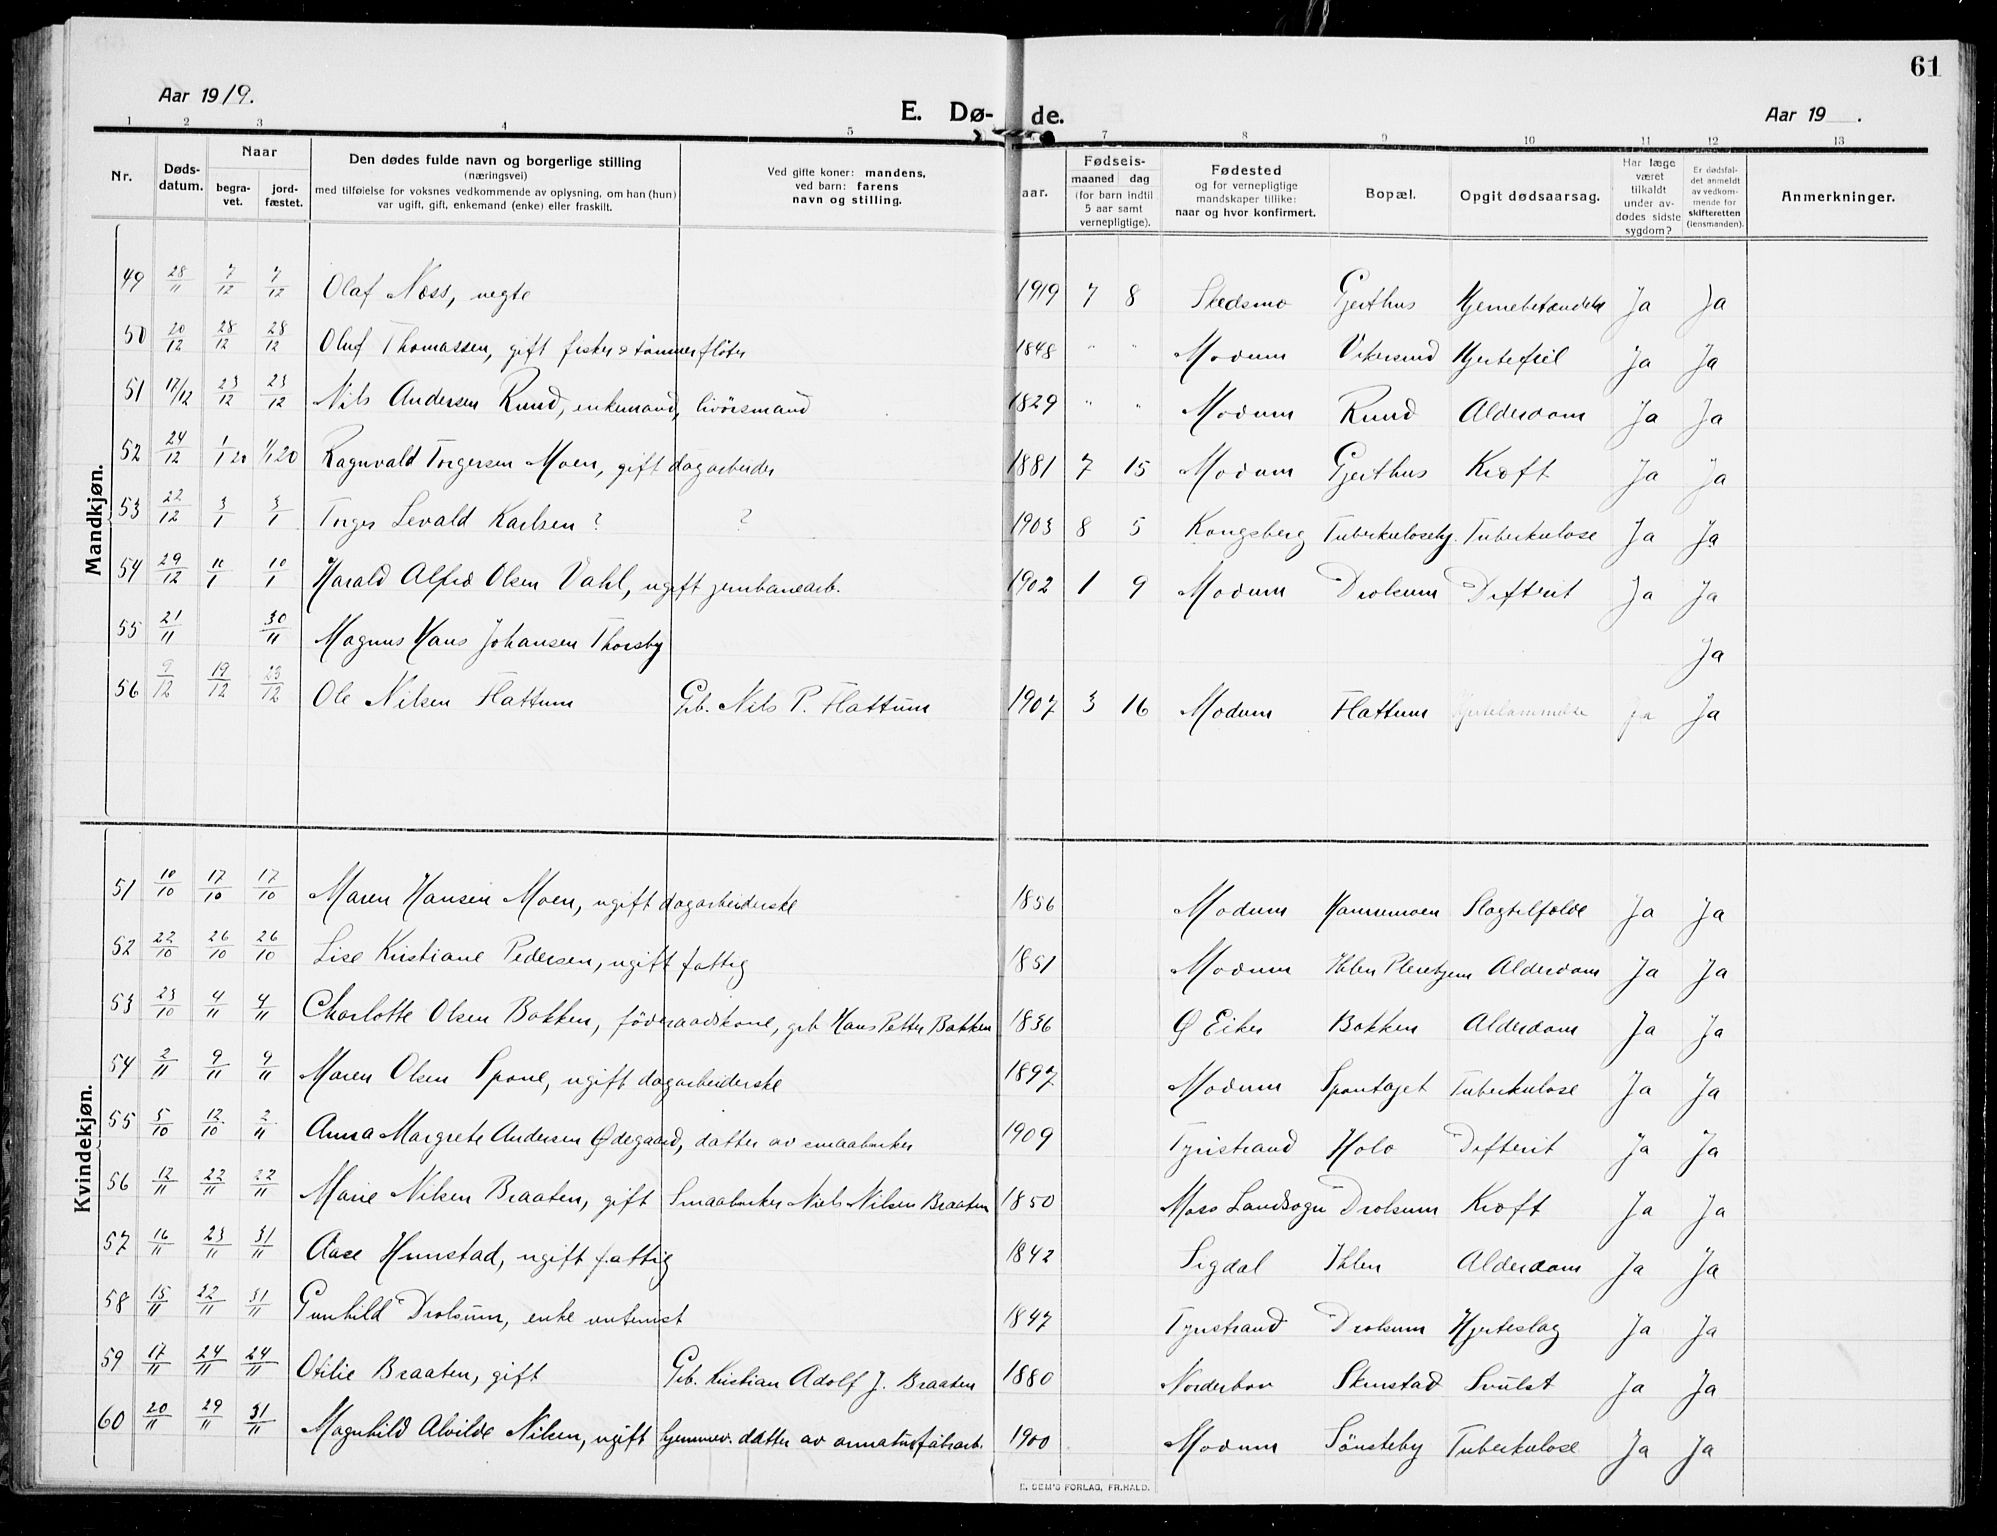 61
Aar 1919.
E. Dø- de.
Aar 19 .
1 2 3 4 5 7 8 9 10 11 12 13
Nr.
Døds-datum.
Naar
begra-vet.
jord-fæstet.
Den dødes fulde navn og borgerlige stilling
(næringsvei)
med tilføielse for voksnes vedkommende av oplysning, om han (hun)
var ugift, gift, enkemand (enke) eller fraskilt.
Ved gifte koner: mandens,
ved barn: farens
navn og stilling.
aar.
Fødsels-
maaned dag
(for barn indtil
5 aar samt
vernepligtige).
Fødested
og for vernepligtige
mandskaper tillike:
naar og hvor konfirmert.
Bopæl.
Opgit dødsaarsag.
Har læge
været
tilkaldt
under av-
dødes sidste
sygdom?
Er dødsfal-
det anmeldt
av vedkom-
mende for
skifteretten
(lensmanden).
Anmerkninger.
Mandkjøn.
49 28/11 7/12 7/12 Olaf Næss, negte 1919 7 8 Skedsmo Gjerthus Hjernebetændelse Ja Ja
50 20/12 28/12 28/12 Oluf Thomassen, gift fisker & tømmerfløter 1848 " " Modum Vikersund Hjertefeil Ja Ja
51 17/12 23/12 23/12 Nils Andersen Rund, enkemand, livørsmand 1829 " " Modum Rund Alderdom Ja Ja
52 24/12 1/1 20 1/1 20 Ragnvald Torgersen Moen, gift dagarbeider 1881 7 15 Modum Gjerthus Kræft Ja Ja
53 22/12 3/1 3/1 Torger Sevald Karlsen ? ? 1903 8 5 Kongsberg Tuberkulosehj. Tuberkulose Ja Ja
54 29/12 10/1 10/1 Harald Alfred Olsen Vahl, ugift jernbanearb. 1902 1 9 Modum Drolsum Difterit Ja Ja
55 21/11 30/11 Magnus Hans Johansen Thorsby Ja
56 9/12 19/12 23/12 Ole Nilsen Flattum Grb. Nils P. Flattum 1907 3 16 Modum Flattum Hjertelammelse ja Ja
Kvindekjøn.
51 10/10 17/10 17/10 Maren Hansen Moen, ugift dagarbeiderske 1856 Modum Hansemoen Slagtilfælde Ja Ja
52 22/10 26/10 26/10 Lise Kristiane Pedersen, ugift fattig 1851 Modum Ihlen Pleiehjem Alderdom Ja Ja
53 23/10 4/11 4/11 Charlotte Olsen Bakken, føderaadskone, grb Hans Petter Bakken 1836 Ø Eiker Bakken Alderdom Ja Ja
54 2/11 9/11 9/11 Maren Olsen Spone, ugift dagarbeiderske 1897 Modum Spontaget Tuberkulose Ja Ja
55 5/10 12/10 2/11 Anna Margrete Andersen Ødegaard, datter av smaabruker 1909 Tyristrand Holo Difterit Ja Ja
56 12/11 22/11 22/11 Marie Nilsen Braaten, gift Smaabruker Niels Nilsen Braaten 1850 Moss Landsogn Drolsum Kræft Ja Ja
57 16/11 23/11 31/11 Aase Hunstad, ugift fattig 1842 Sigdal Ihlen Alderdom Ja Ja
58 15/11 22/11 31/11 Gunhild Drolsum, enke rentenist 1847 Tyristrand Drolsum Hjerteslag Ja Ja
59 17/11 24/11 24/11 Otilie Braaten, gift Grb. Kristian Adolf J. Braaten 1880 Norderhov Skinstad Svulst Ja Ja
60 20/11 29/11 31/11 Magnhild Alvilde Nilsen, ugift hjemmev. datter av armaturfabrarb. 1900 Modum Sønsteby Tuberkulose Ja Ja
E. SEM'S FORLAG, FR.HALD.